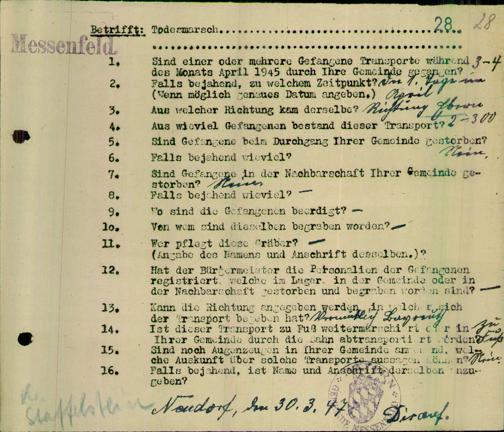 Betrifft: Todesmarsch........................... 28. 28
Messenfeld.
1. Sind einer oder mehrere Gefangene Transporte während 3-4
des Monats April 1945 durch Ihre Gemeinde gegangen?
2. Falls bejahend, zu welchem Zeitpunkt? Im
(Wenn möglich genaues Datum angeben.) April
3. Aus welcher Richtung kam derselbe? Richtung
4. Aus wieviel Gefangenen bestand dieser Transport? 2-300
5. Sind Gefangene beim Durchgang Ihrer Gemeinde gestorben?
6. Falls bejahend wieviel? Nein.
7. Sind Gefangene in der Nachbarschaft Ihrer Gemeinde ge-
storben? Nein
8. Falls bejahend wieviel? —
9. Wo sind die Gefangenen beerdigt? —
10. Von wem sind dieselben begraben worden? —
11. Wer pflegt diese Gräber? —
(Angabe des Namens und Anschrift desselben.)?
12. Hat der Bürgermeister die Personalien der Gefangenen
registriert, welche im Lager, in der Gemeinde oder in
der Nachbarschaft gestorben und begraben worden sind? —
13. Kann die Richtung angegeben werden, in welch
der Transport begeben hat?
14. Ist dieser Transport zu Fuß weitermarschiert oder in zu
Ihrer Gemeinde durch die Bahn abtransportiert worden Fuß
15. Sind noch Augenzeugen in Ihrer Gemeinde
che Auskunft über solche Transporte Nein
16. Falls bejahend, ist Name und Anschrift derselben anzu-
geben?
Staffelstein
Neudorf, den 30.3.47